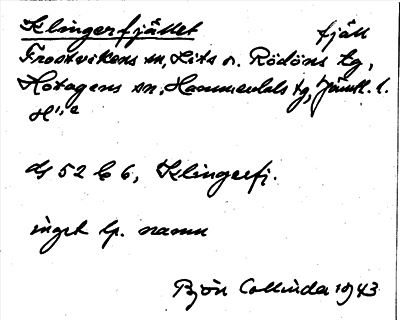 Klingerfjället fjäll
Frostvikens sn, Lits o. Rödöns tg,
Hotagens sn, Hammerdals tg, Jämtl. l.
ds 52 b 6, Klingerfj.
inget lp. namn
Björn Collinder 1943